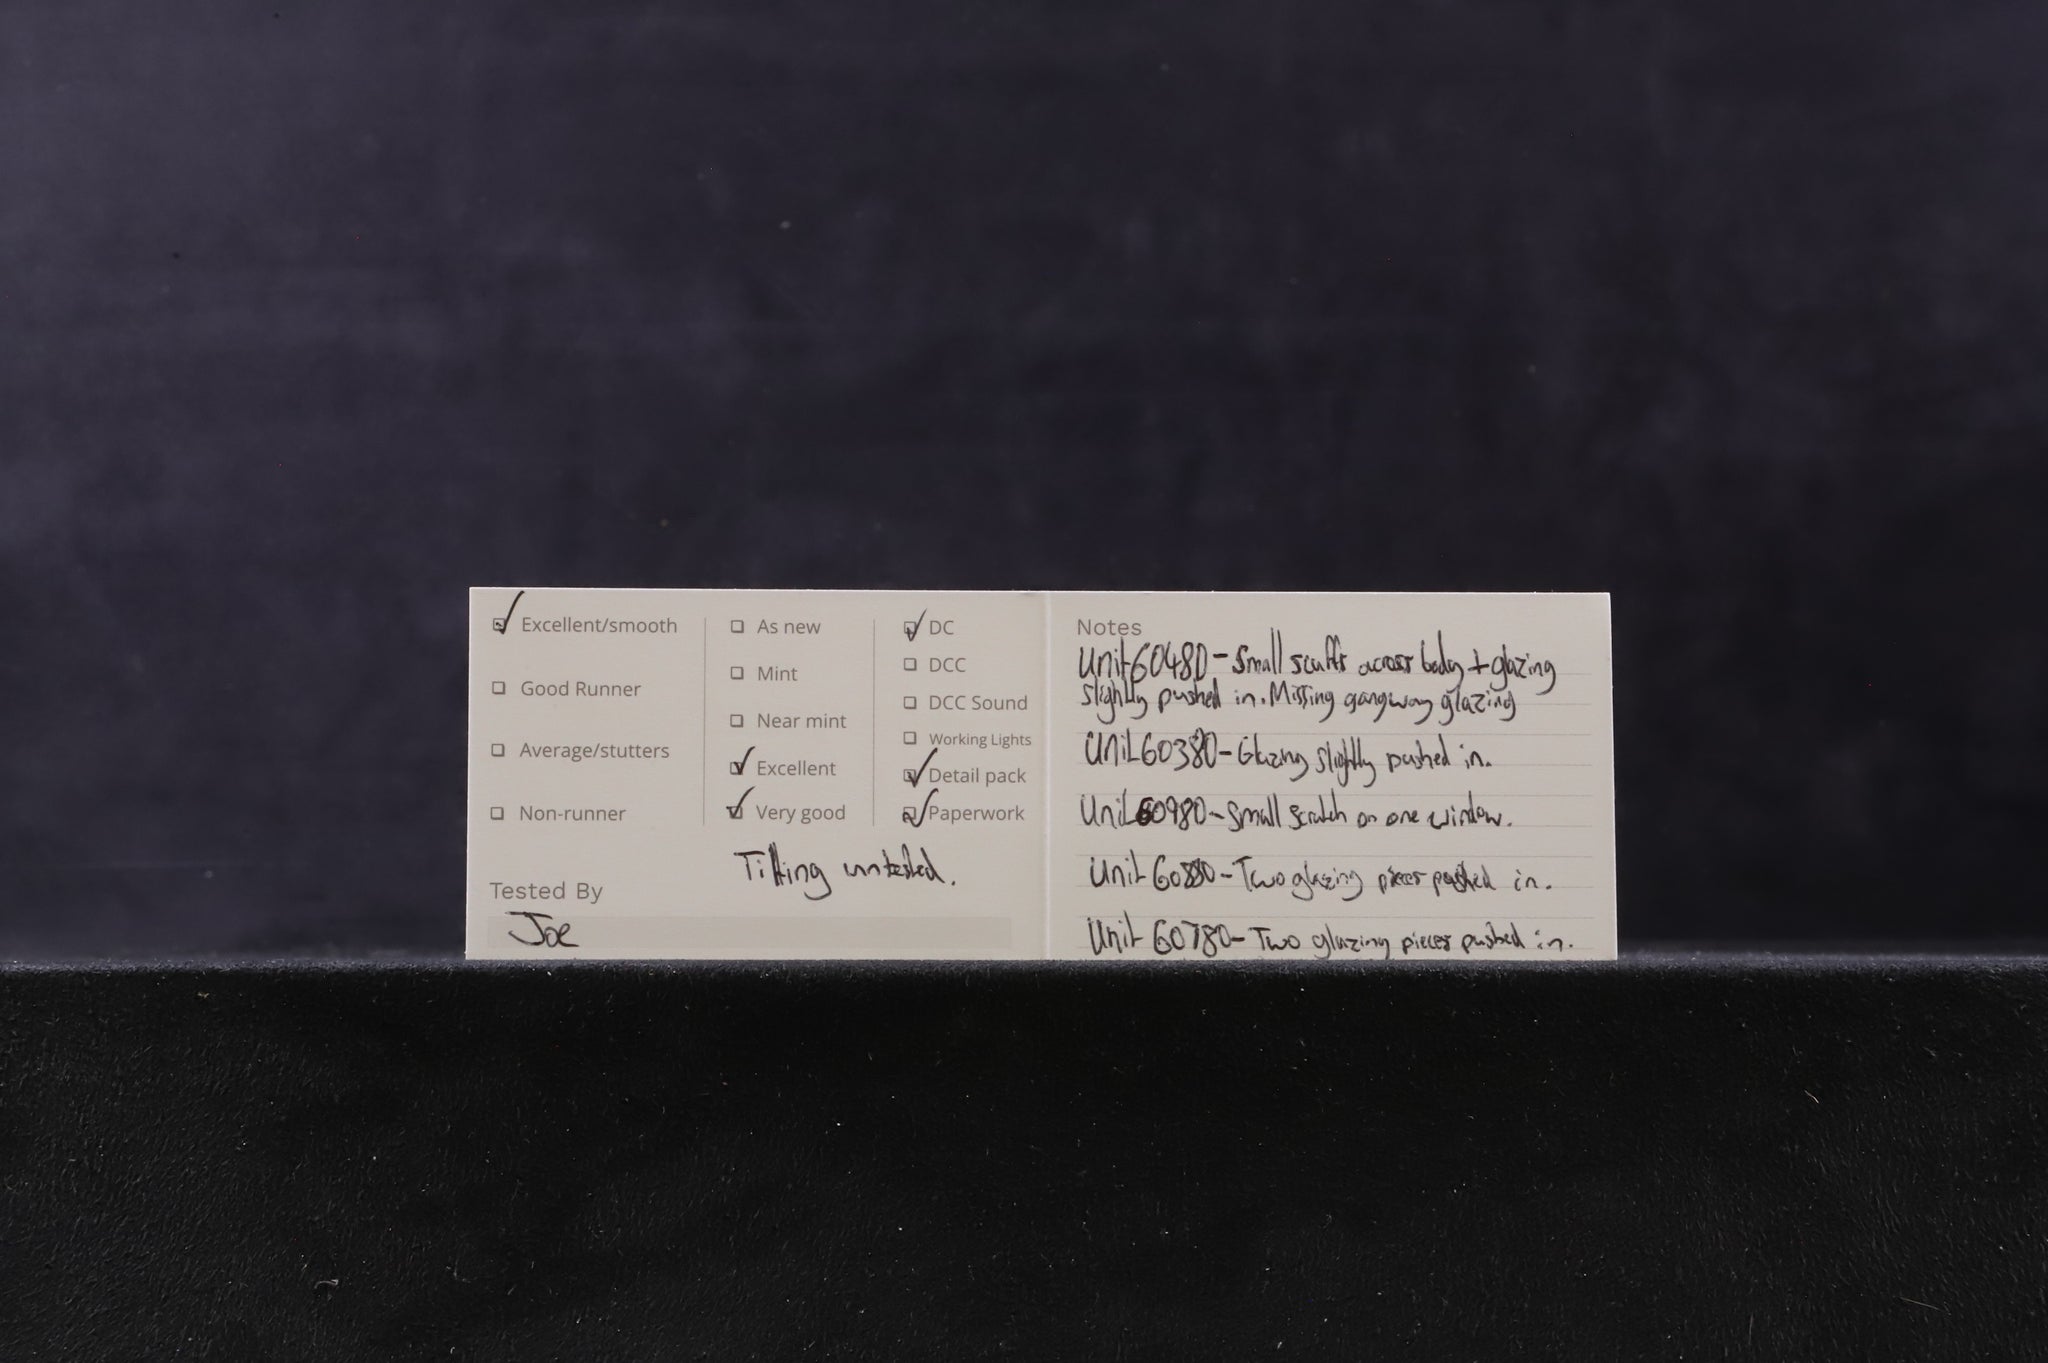 Excellent/smooth
Good Runner
Average/stutters
Non-runner
Tested By
Joe
As new
Mint
Near mint
Excellent
Very good
Tilting untested.
DC
DCC
DCC Sound
Working Lights
Detail pack
Paperwork
Notes
Unit 60480 - Small scuffs across body + glazing
slightly pushed in. Missing gangway glazing
Unit 60380 - Glazing slightly pushed in.
Unit 60980 - Small scratch on one window.
Unit 60880 - Two glazing pieces pushed in.
Unit 60780 - Two glazing pieces pushed in.